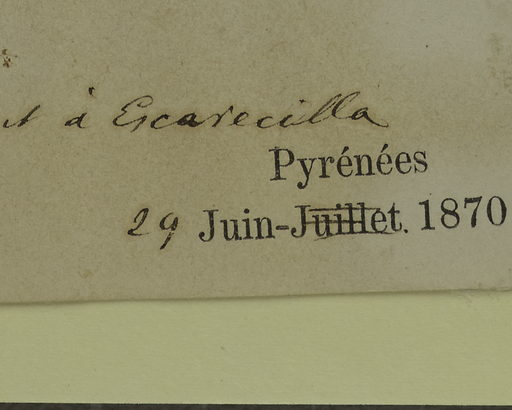 à Escarecilla
Pyrénées
29 Juin-Juillet. 1870